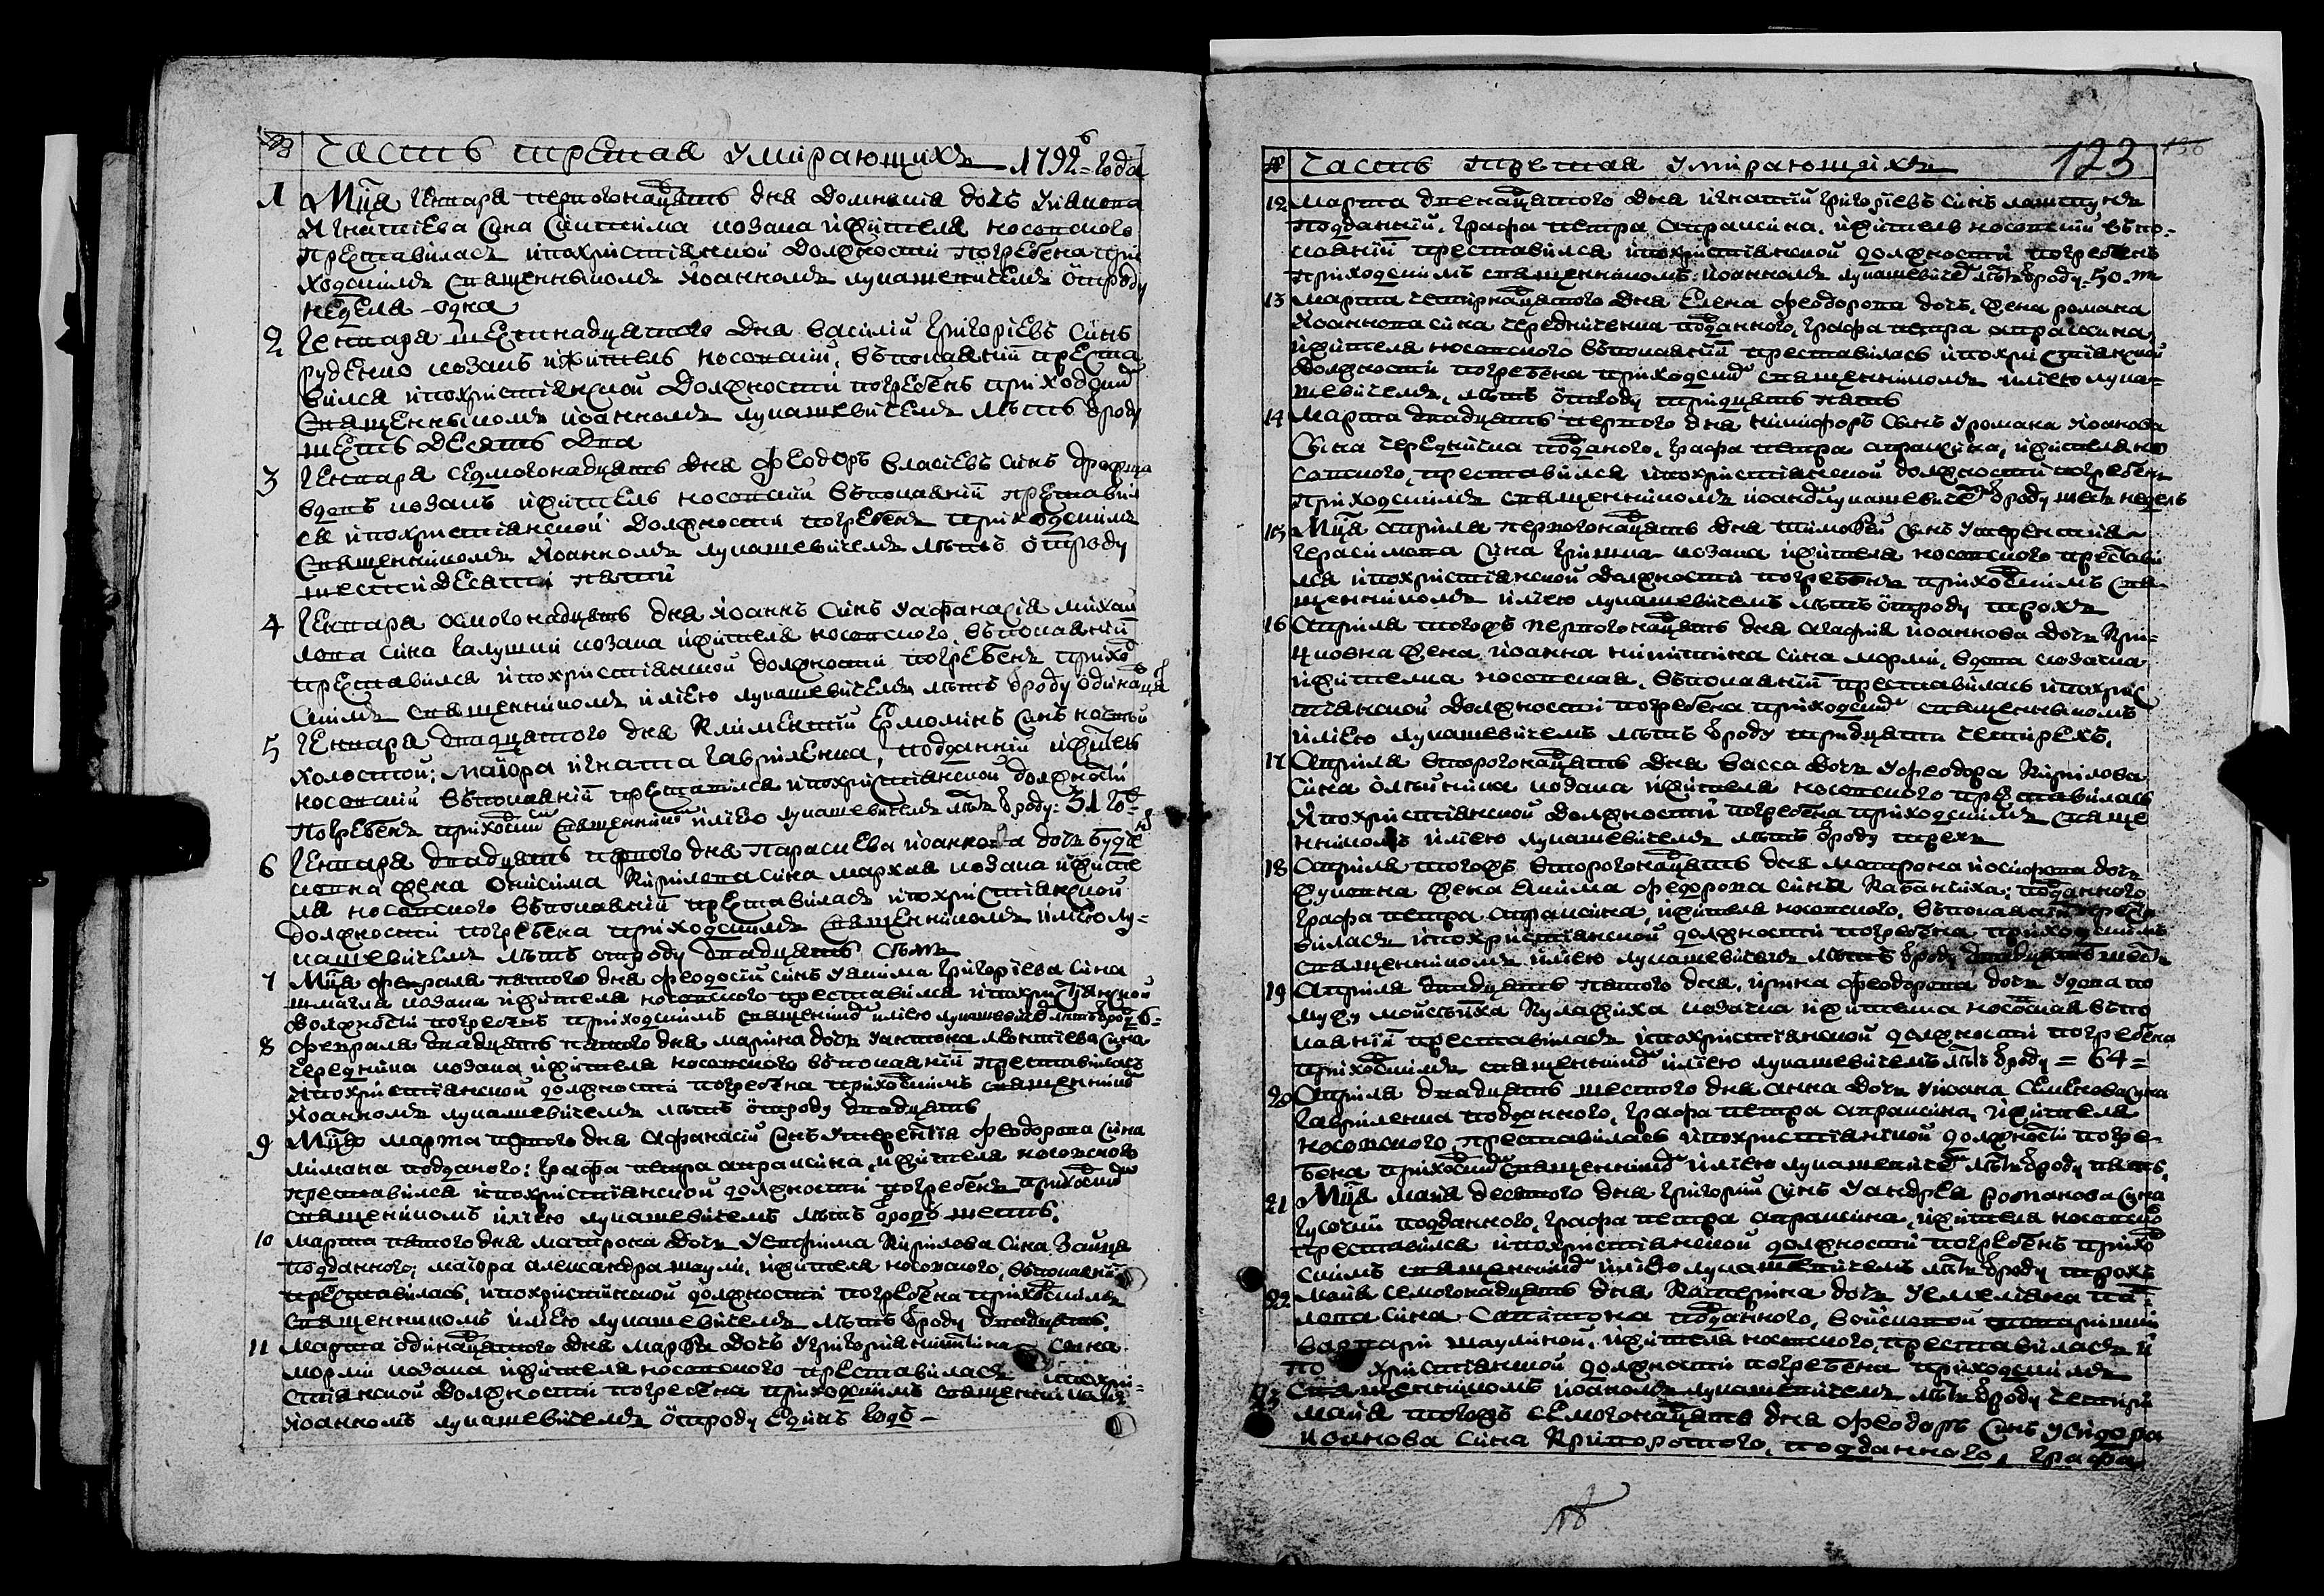 Часть третая умирающихъ 1792 = года
1 Мца генваря первогонадцять дня Домникія дочь
Игнатіева сина козака жителя носовского
преставилась ипохристіянской должности погребена при
ходскимъ священникомъ Іоанномъ Лукашевичемъ отроду
неделя одна
2 Генваря шестнадцятого дня Василий Григоріевъ синъ
Руденко козакъ житель носовский, вѣпокаянїи преста
вился ипохристіянской должности погребенъ приходским
священникомъ Іоанномъ Лукашевичемъ лѣтъ отроду
шестьдесятъ два
3 Генваря седмогонадцять дня Феодоръ Власіевъ синъ
вдовъ козакъ житель носовский вѣпокаянїи преставил
ся ипохристіянской должности погребенъ приходскимъ
священникомъ Іоанномъ Лукашевичемъ лѣтъ отроду
шестидесяти пяти
4 Генваря осмогонадцять дня Іоаннъ синъ Уафанасія Михаи
лова сина козака жителя носовского, вѣпокаянїи
преставился ипохристіянской должности погребенъ прихо
скимъ священникомъ имѣю Лукашевичемъ лѣтъ отроду
5 Генваря двадцятого дня Климентий Ермолинъ синъ
холостой; маіора Игната Гавриленка, подданний житель
носовский вѣпокаянїи преставился ипохристіянской должности
погребенъ приходским священником імѣю Лукашевичемъ лѣтъ отроду: 31 го=
6 Генваря двадцять первого дня Параскева Іоаннова дочь
жена Онисима Кирилова сина козака жите
ля носовского вѣпокаянїи преставилась ипохристіянской
должности погребена приходскимъ священникомъ імѣю Лу=
кашевичемъ лѣтъ отроду двадцять сѣмъ
7 Мца февраля пятого дня Феодосий синъ Уакима Григоріева сина
козака жителя носовского преставился ипохристіянской
должности погребенъ приходскимъ священником імѣю Лукашевичем лѣтъ отроду 6=
8 Февраля двадцять пятого дня Марина дочь Уантона Леонтіева сина
Чередника козака жителя носовского вѣпокаянїи преставилась
ипохристіянской должности погребена приходскимъ священником
Іоанномъ Лукашевичемъ лѣтъ отроду двадцять
9 Мца марта первого дня Афанасий синъ Утерентія Феодорова сина
Лимана подданого; графа Петра Апраксина, жителя носовского
преставился ипохристіянской должности погребенъ приходским
священникомъ імѣю Лукашевичемъ лѣтъ отроду шесть,
10 Марта пятого дня Матрона дочь Уевфима Кирилова сина Заиця
подданного; маіора Александра Шаули, жителя носовского, вѣпокаянїи
преставилась, ипохристіянской должности погребена приходскимъ
священникомъ імѣю Лукашевичемъ лѣтъ отроду двадцять,
11 Марта одинадцятого дня Марѳа дочь Угригорія Никитина сина
Морли козака жителя носовского преставилась ипохри=
стіянской должности погребена приходскимъ священникомъ
Іоанномъ Лукашевичемъ отроду единъ годъ -
Часть третая умирающихъ 123
12 Марта двенадцятого дня Игнатий Григоріевъ синъ
подданний, графа Петра Апраксина, житель носовский вѣпо=
каянїи преставился ипохристіянской должности погребенъ
приходскимъ священникомъ Іоанномъ Лукашевичем лѣтъ отроду: 50.
13 Марта четирнадцятого дня Елена Феодорова дочь, жена Романа
Іоаннова сина Чередниченка подданного, графа Петра Апраксина,
жителя носовского вѣпокаянїи преставилась ипохристіянской
должности погребена приходским священникомъ імѣю Лука=
шевичемъ, лѣтъ отроду тридцять пять
14 Марта двадцять первого дня Никифоръ синъ Уромана Іоанова
сина Чередника подданого, графа Петра Апраксина, жителя но
совского, преставился ипохристіянской должности погребенъ
приходскимъ священникомъ Іоаном Лукашевичем отроду шесть недель
15 Мца априля первогонадцять дня Тимоѳей синъ Утерентия
Герасимова сина Гришка козака жителя носовского престави
лся ипохристіянской должности погребенъ приходскимъ свя
щенникомъ імѣю Лукашевичемъ лѣтъ отроду трохъ
16 Априля тогожъ первогонадцять дня Агафия Іоаннова дочь
жена Іоанна Никитина сина Морли, вдова козачка
жителка носовская, вѣпокаянїи преставилась ипохрис
тіянской должности погребена приходским священникомъ
імѣю Лукашевичемъ лѣтъ отроду тридцяти четирехъ,
17 Априля второгонадцять дня Васса дочь Уфеодора Кирилова
сина козака жителя носовского преставилась
ипохристіянской должности погребена приходскимъ свяще
нникомъ імѣю Лукашевичемъ лѣтъ отроду трехъ
18 Априля тогожъ второгонадцять дня Матрона Іосифова дочь
жена Акима Федорова сина подданного
графа Петра Апраксина, жителя носовского, вѣпокаянїи преста
вилась ипохристіянской должности погребена приходскимъ
священникомъ імѣю Лукашевичемъ лѣтъ отроду двадцять шесть
19 Априля двадцять пятого дня, Ирина Феодорова дочь Удова по
мужу козачка жителка носовская вѣпо
каянїи преставилась ипохристіянской должности погребена
приходскимъ священником імѣю Лукашевичемъ лѣтъ отроду = 64 =
20 Априля двадцять шестого дня Анна дочь Уивана Семенова сина
Гавриленка подданного, графа Петра Апраксина, жителя
носовского преставилась ипохристіянской должности погре=
бена приходским священником імѣю Лукашевичем лѣтъ отроду пять,
21 Мца маія десятого дня Григорий синъ Уандрея Романова сина
подданного, графа Петра Апраксина, жителя носовского
преставился ипохристіянской должности погребенъ прихо
скимъ священником імѣю Лукашевичемъ лѣтъ отроду трохъ
22 Маія семогонадцять дня Катерина дочь Уемеляна
лова сина подданного,
Шаулиной, жителя носовского, преставилась и
по христіянской должности погребена приходскимъ
священникомъ Іоаномъ Лукашевичемъ лѣтъ отроду четири
23 Маія тогожъ семогонадцять дня Феодоръ синъ
Іоанова сина Криворотого, подданного, графа